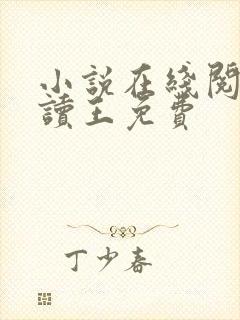 小說在綫閱
讀王免費
丁少春